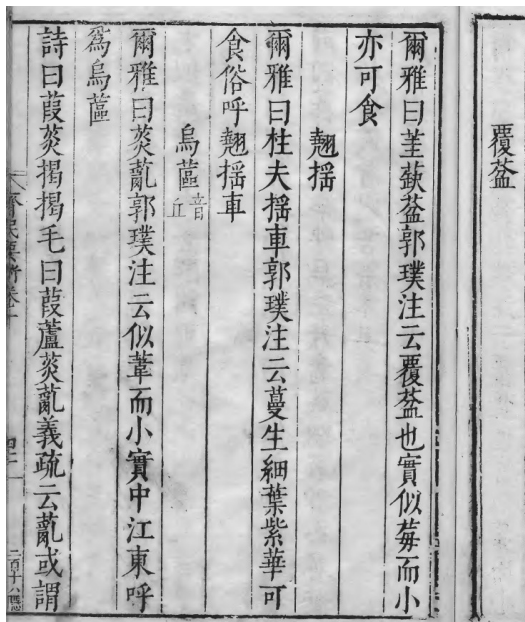 覆葐
爾雅曰堇蒛葐郭璞注云覆葐也實似莓而小
亦可食
翹揺
爾雅曰柱夫揺車郭璞注云蔓生細葉紫華可
食俗呼翹揺車
烏蓲音丘
爾雅曰菼薍郭璞注云似葦而小實中江東呼
爲烏蓲
詩曰葭菼揭揭毛曰葭蘆菼薍義疏云薍或謂
齊民要術卷十